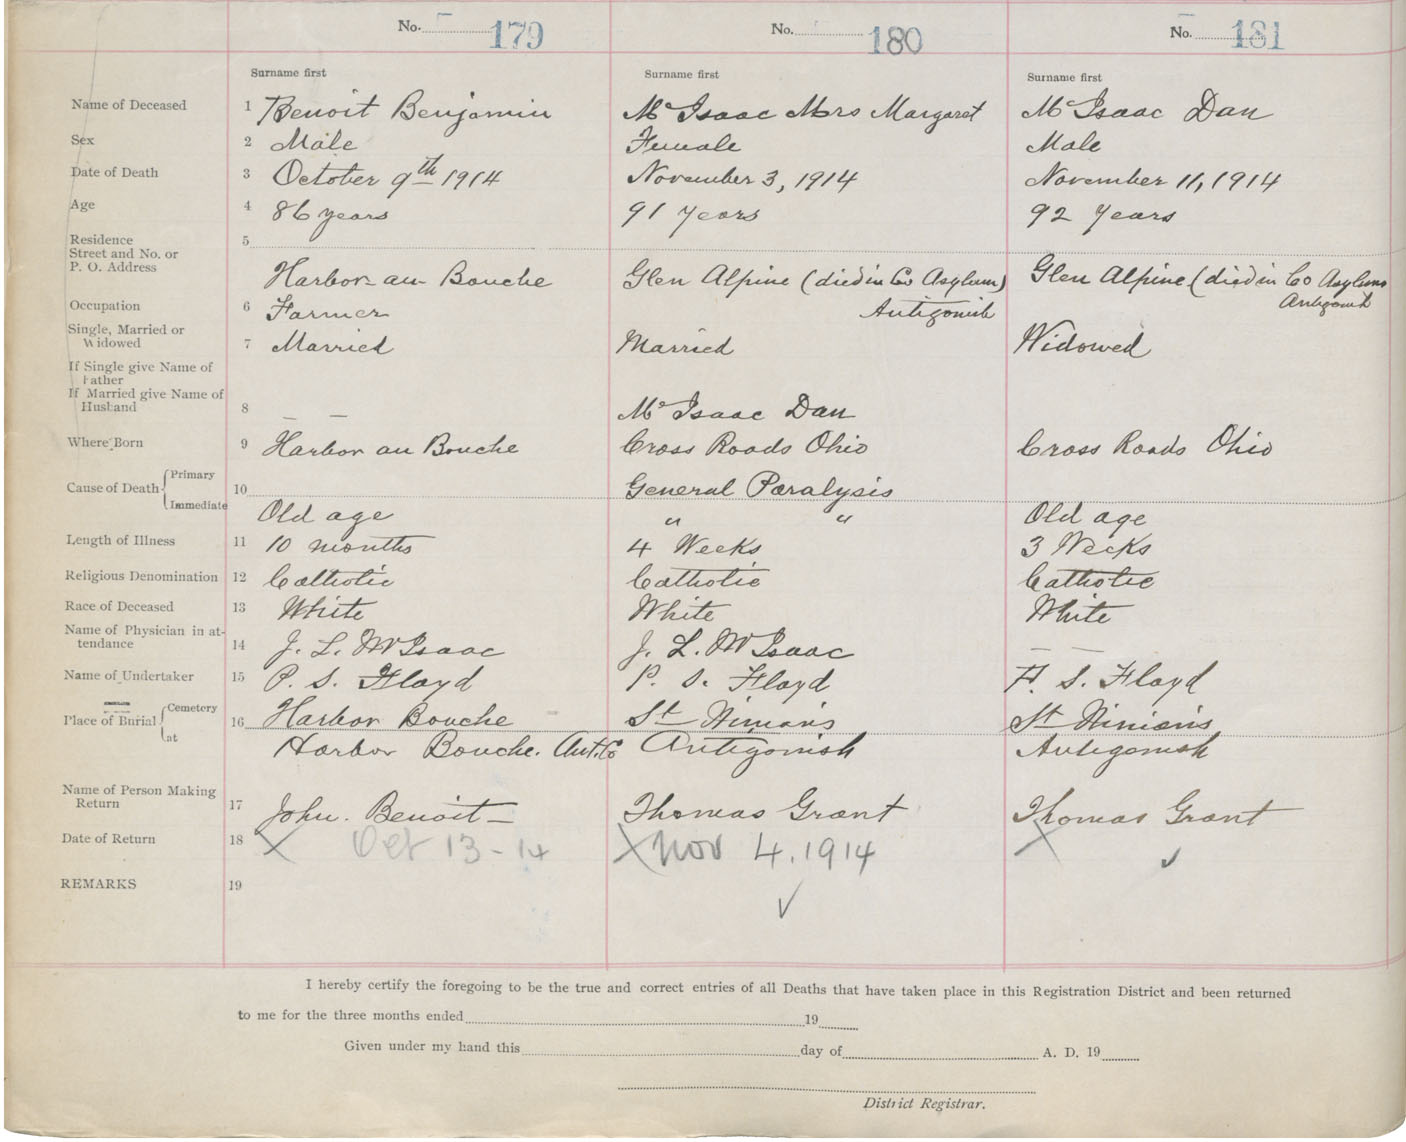 No. 179 No. 180 No. 181
Surname first Surname first Surname first
Name of Deceased 1 Benoit Benjamin Mc Isaac Mrs Margaret Mc Isaac Dan
Sex 2 Male Female Male
Date of Death 3 October 9th 1914 November 3, 1914 November 11, 1914
Age 4 86 years 91 years 92 years
Residence 5
Street and No. or
P. O. Address Harbor au Bouche Glen Alpine (died in Co Asylum) Glen Alpine (died in Co Asylum
Antigonish Antigonish
Occupation 6 Farmer
Single, Married or
Widowed 7 Married Married Widowed
If Single give Name of
Father
If Married give Name of
Husband 8 — — Mc Isaac Dan
Where Born 9 Harbor au Bouche Cross Roads Ohio Cross Roads Ohio
Cause of Death Primary 10 General Paralysis
Immediate Old age " " Old age
Length of Illness 11 10 months 4 Weeks 3 Weeks
Religious Denomination 12 Catholic Catholic Catholic
Race of Deceased 13 White White White
Name of Physician in at-
tendance 14 J. L. McIsaac J. L. McIsaac — —
Name of Undertaker 15 P. S. Floyd P. S. Floyd P. S. Floyd
Place of Burial Cemetery 16 Harbor Bouche St Ninian's St Ninian's
at Harbor Bouche. Ant. Co Antigonish Antigonish
Name of Person Making
Return 17 John. Benoit Thomas Grant Thomas Grant
Date of Return 18 X Oct 13-14 X Nov 4, 1914 X
REMARKS 19
I hereby certify the foregoing to be the true and correct entries of all Deaths that have taken place in this Registration District and been returned
to me for the three months ended 19
Given under my hand this day of A. D. 19
District Registrar.